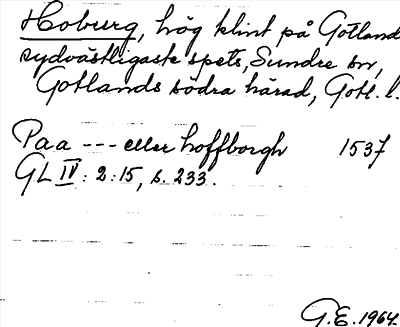 Hoburg, hög klint på Gotland
sydvästligaste spets, Sundre sn,
Gotlands södra härad, Gotl. l.
Paa --- eller hoffborgh 1537
GL IV: 2:15, s. 233.
G.E. 1964.